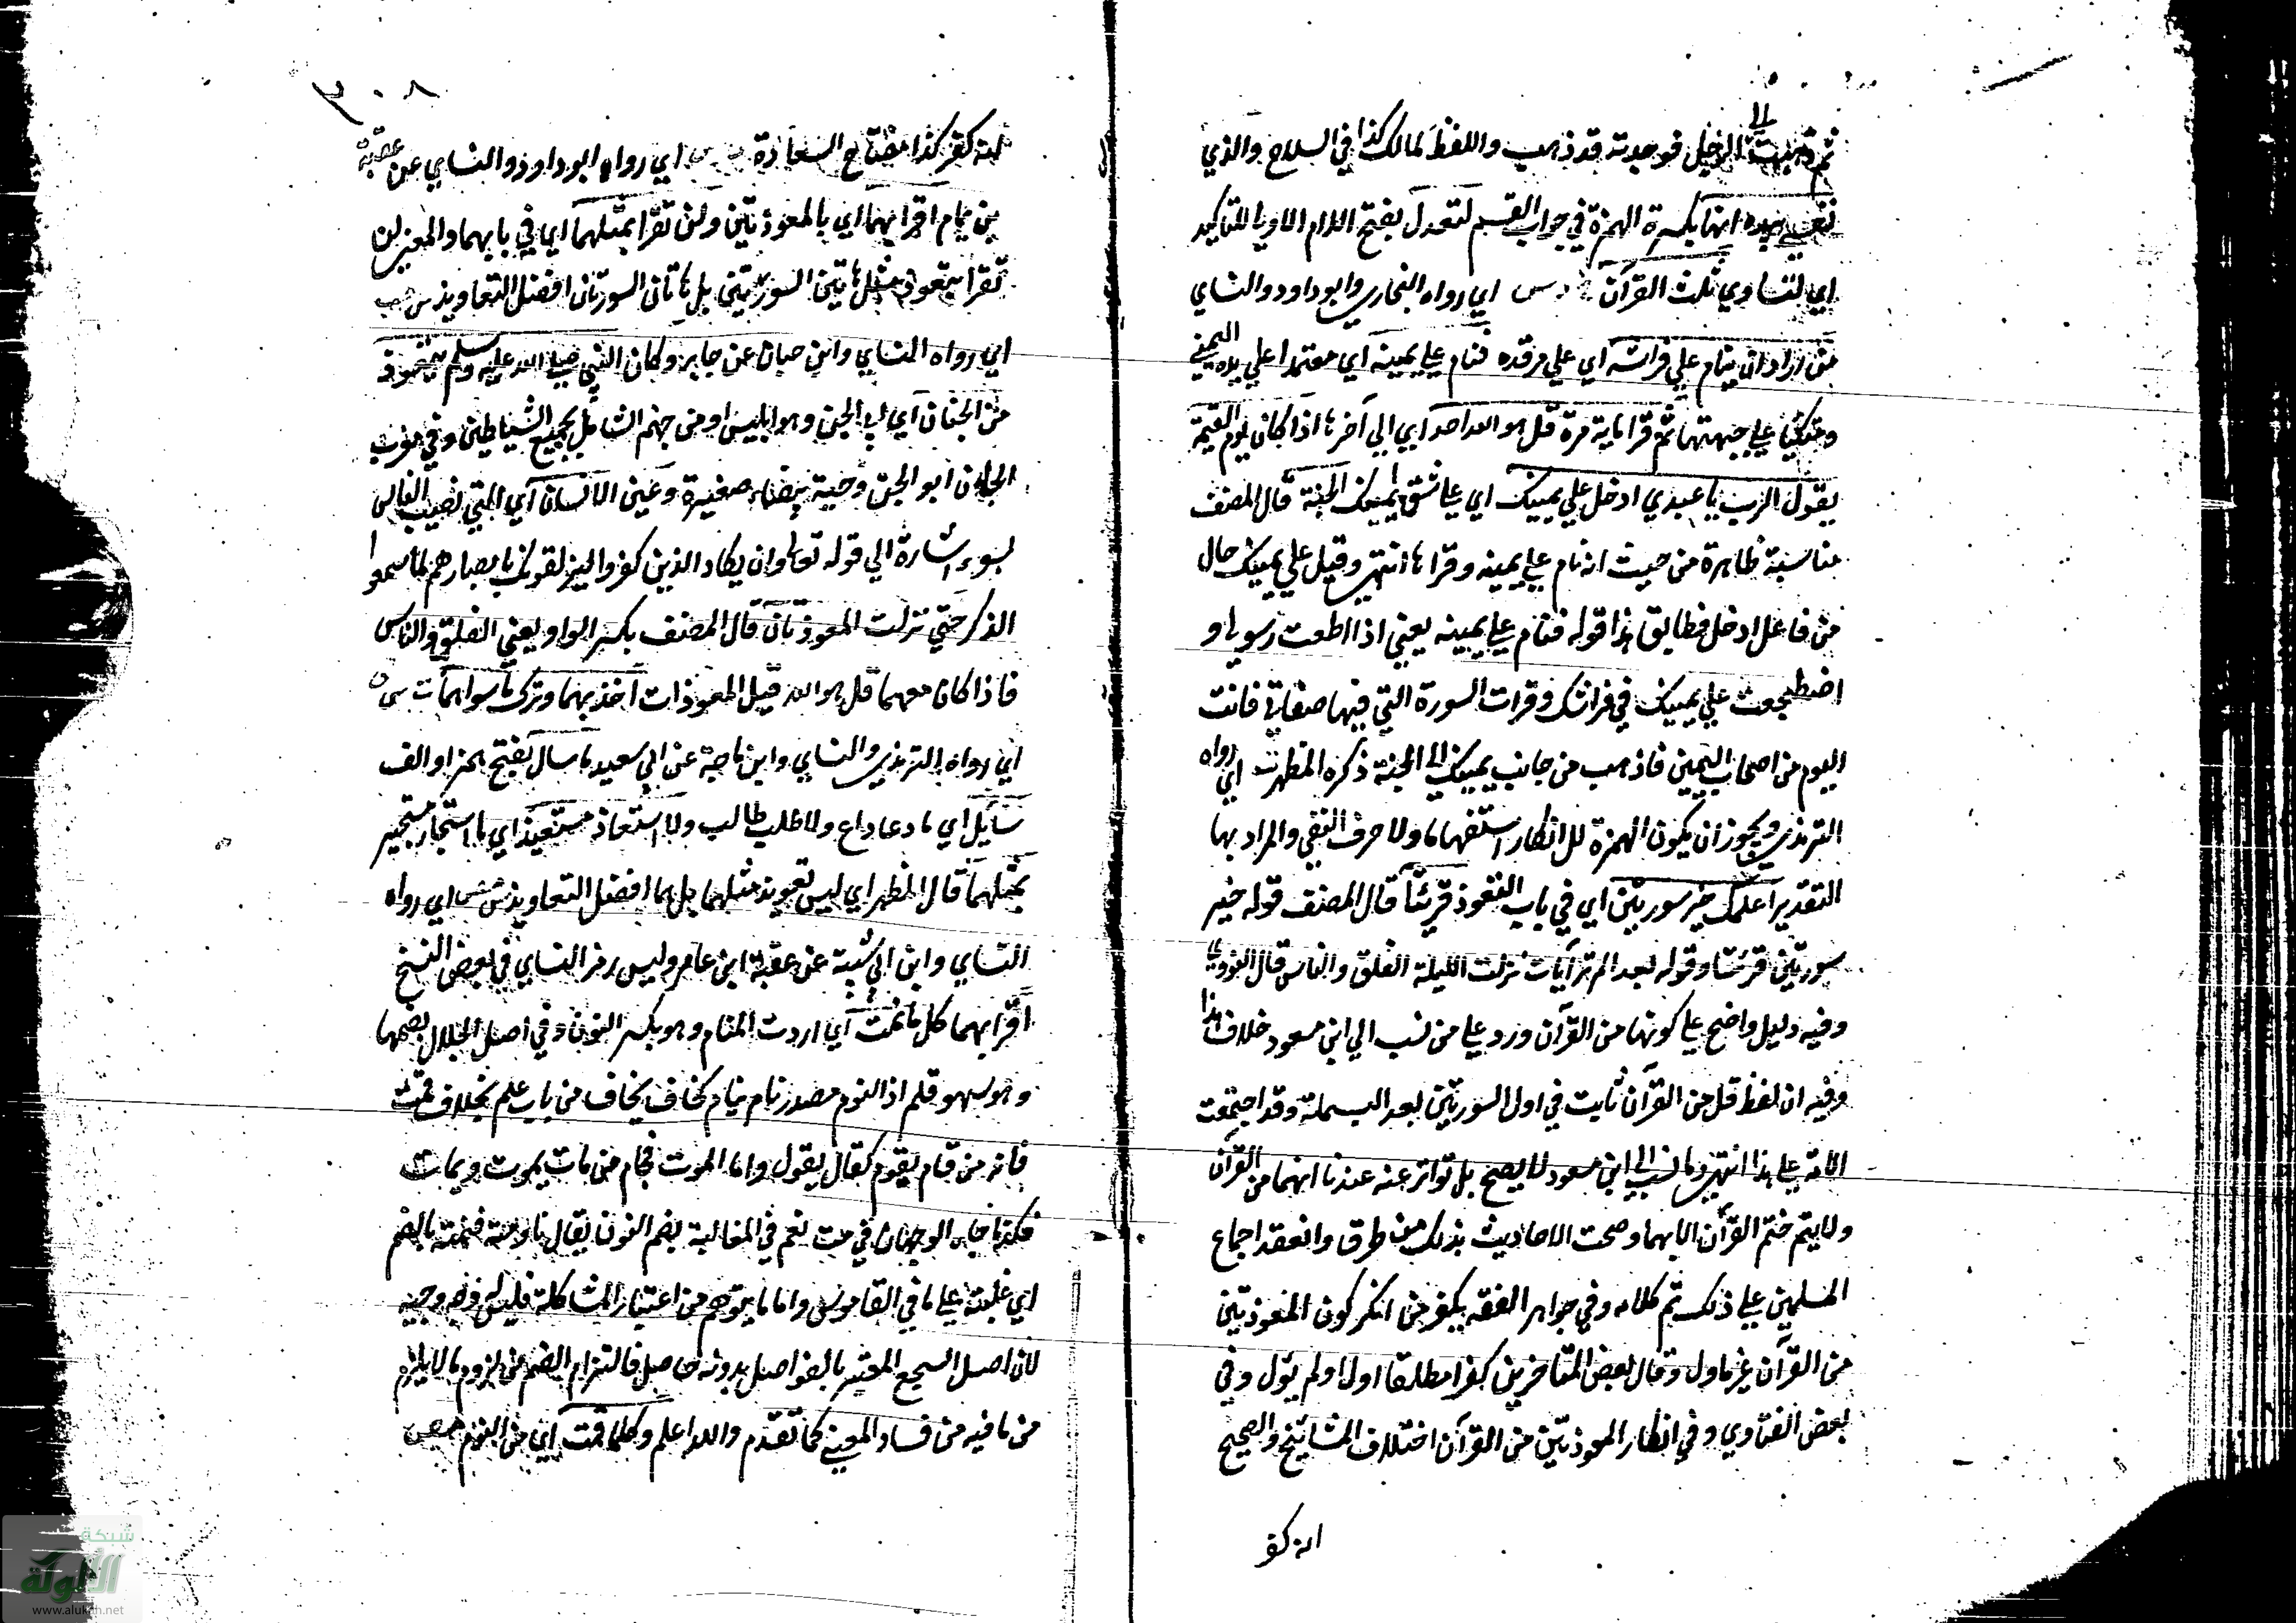 ثم ذهبت الى الرجل فوجدته قد ذهب واللفظ لمالك كذا في السلاح والذي
نفسي بيده انها بكسرة الهمزة في جواب القسم لتعدل بفتح اللام الاولى للتاكيد
اي لتساوي ثلث القرآن خ د س اي رواه البخاري وابو داود والنساي
من اراد ان ينام علي فراشه اي علي مرقده فنام علي يمينه اي معتمدا علي يده اليمني
ومتكئا علي جبهتها ثم قرا ماية مرة قل هو الله احد اي الي آخرها اذا كان يوم القيمة
يقول الرب يا عبدي ادخل علي يمينك اي علي شق يمينك الجنة قال المصنف
مناسبته ظاهرة من حيث انه نام علي يمينه وقراها انتهي وقيل علي يمينك حال
من فاعل ادخل فطابق هذا قوله فنام علي يمينه يعني اذا اطعت رسولي و
اضطجعت علي يمينك في فراشك وقرات السورة التي فيها صفاتي فانت
اليوم من اصحاب اليمين فاذهب من جانب يمينك الى الجنة ذكره المظهر ت اي رواه
الترمذي ويجوز ان يكون الهمزة للانكار استفهاما ولا حرف النفي والمراد بها
التقدير اعلمك خير سورتين اي في باب التعوذ قرئتا قال المصنف قوله خير
سورتين قرئتا وقوله بعد الم تر آيات نزلت الليلة الفلق والناس قال النووي
وفيه دليل واضح علي كونها من القرآن ورد علي من نسب الي ابن مسعود خلاف هذا
وفيه ان لفظ قل من القرآن ثابت في اول السورتين بعد البسملة وقد اجتمعت
الامة علي هذا انتهي وما نسب الى ابن مسعود لا يصح بل تواتر عنه عندنا انهما من القرآن
ولا يتم ختم القرآن الا بهما وصحت الاحاديث بذلك من طرق وانعقد اجماع
المسلمين علي ذلك تم كلامه وفي جواهر الفقه يكفر من انكر كون المعوذتين
من القرآن غير ماول وقال بعض المتاخرين كفر مطلقا اول او لم يئول وفي
بعض الفتاوي وفي انكار المعوذتين من القرآن اختلاف المشايخ والصحيح
انه كفر
٣٠٨
انه كفر كذا مفتاح السعادة د س اي رواه ابو داود والنساي عن عقبة
بن عامر اقرا بهما اي بالمعوذتين ولن تقرا بمثلهما اي في بابهما والمعنى لن
تقرا بتعوذ مثل هاتين السورتين بل هاتان السورتان افضل التعاويذ س حب
اي رواه النساي وابن حبان عن جابر وكان النبي صلي الله عليه وسلم يتعوذ
من الجان اي ابي الجن وهو ابليس او من جنهم الشامل لجميع الشياطين وفي مغرب
الجان ابو الجن وحية بيضاء صغيرة وعين الانسان اي التي تصيب الغالى
بسوء اشارة الي قوله تعالي وان يكاد الذين كفروا ليزلقونك بابصارهم لما سمعوا
الذكر حتي نزلت المعوذتان قال المصنف بكسر الواو يعني الفلق والناس
فاذا كان معهما قل هو الله قيل المعوذات اخذ بهما وترك ما سواهما ت س ق
اي رواه الترمذي والنساي وابن ماجة عن ابي سعيد ما سال بفتح همز او الف
سايل اي ما دعا داع ولا طلب طالب ولا استعاذ مستعيذ اي ما استجار مستجير
بمثلهما قال المظهر اي ليس تعويذ مثلهما بل هما افضل التعاويذ س مص اي رواه
النساي وابن ابي شيبة عن عقبة ابن عامر وليس رمز النساي في بعض النسخ
اقرا بهما كل ما نمت اي اردت المنام وهو بكسر النون وفي اصل الجلال بضمها
وهو سهو قلم اذ النوم مصدر نام ينام كخاف يخاف من باب علم بخلاف قمت
فانه من قام يقوم كقال يقول واما الموت فجاء من مات يموت ويمات
فكذا جاء الوجهان في مت نعم في المغالبة بضم النون يقال ناومته فنمته بالضم
اي غلبته علي ما في القاموس واما ما يتوهم من اعتبار المشاكلة فليس له وجه وجيه
لان اصل السجع المعتبر بالفواصل بدونه حاصل فالتزام الضم من لزوم ما لا يلزم
من ما فيه من فساد المعني كما تقدم والله اعلم وكلما قمت اي من النوم مص
شبكة
الألوكة
www.alukah.net